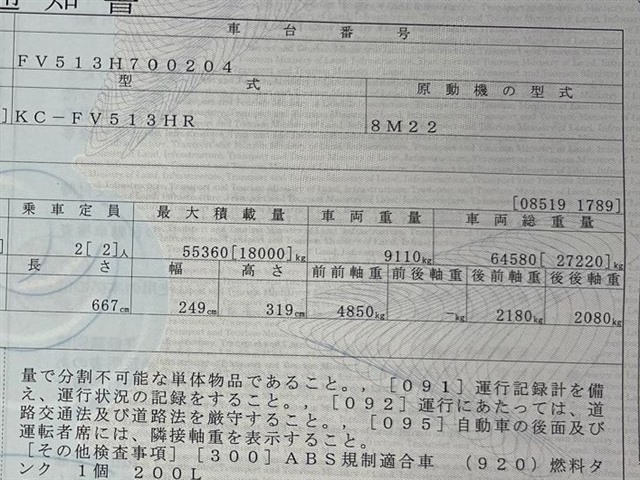 通知書
車台番号
FV513H700204
型式 原動機の型式
KC-FV513HR 8M22
[08519 1789]
乗車定員 最大積載量 車両重量 車両総重量
2[ 2]人 55360[18000]kg 9110kg 64580[ 27220]kg
長さ 幅 高さ 前前軸重 前後軸重 後前軸重 後後軸重
667cm 249cm 319cm 4850kg -kg 2180kg 2080kg
量で分割不可能な単体物品であること。，［091］運行記録計を備
え、運行状況の記録をすること。，［092］運行にあたっては、道
路交通法及び道路法を厳守すること。，［095］自動車の後面及び
運転者席には、隣接軸重を表示すること。
［その他検査事項］［300］ABS規制適合車 （920）燃料タ
ンク 1個 200L